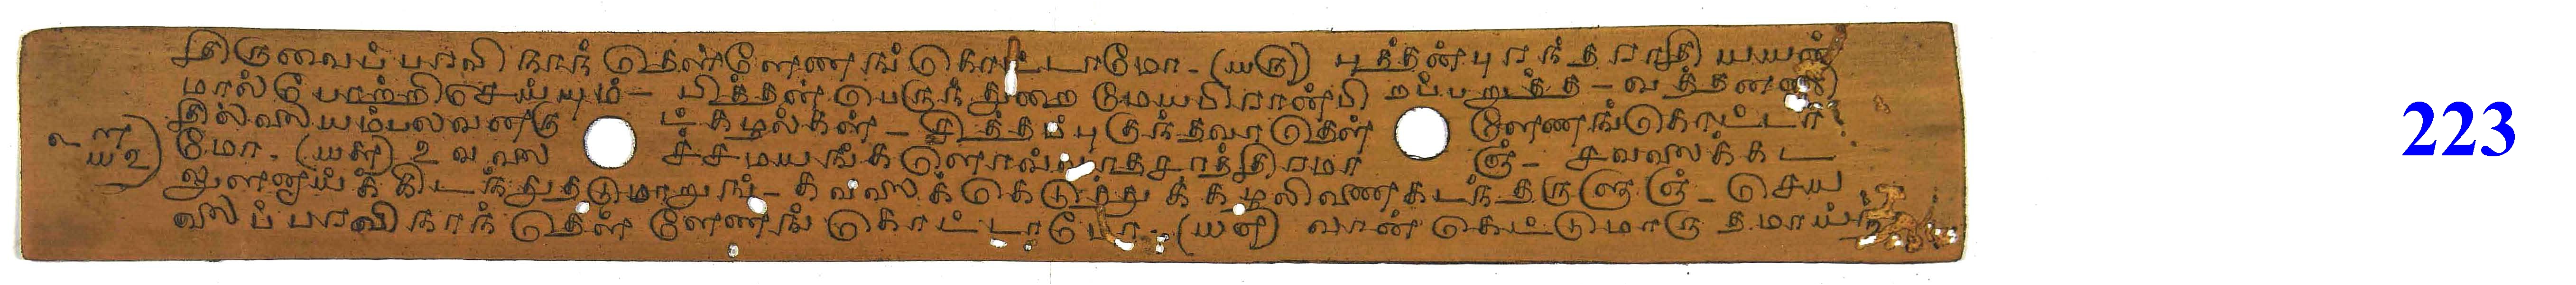 திருவைப்பாவி நாந் தெள்ளேணங் கொட்டாமோ - (௰௫) புத்தன் புரந்தராதியயன்
மால் போற்றிசெய்யும் - பித்தன் பெருந்துறை மேய பிரான் பிறப்பறுத்த - வத்தனணி
தில்லையம்பலவனரு ட்கழல்கள் - சித்தப்புகுந்தவா தெள் ளேணங்கொட்டா
மோ - (௰௬) உவலை ச்சமயங்க ளொவ்வாதசாத்திரமாஞ் - சவலைக்கட
லுளனாய்க்கிடந்துதடுமாறுங் - கவலைக்கெடுத்துக்கழலிணைகடந்தருளுஞ் - செய
லைப்பரவி நாந் தெள்ளேணங் கொட்டாமோ - (௰௭) வான் கெட்டு மாருதமாய்ந்
223